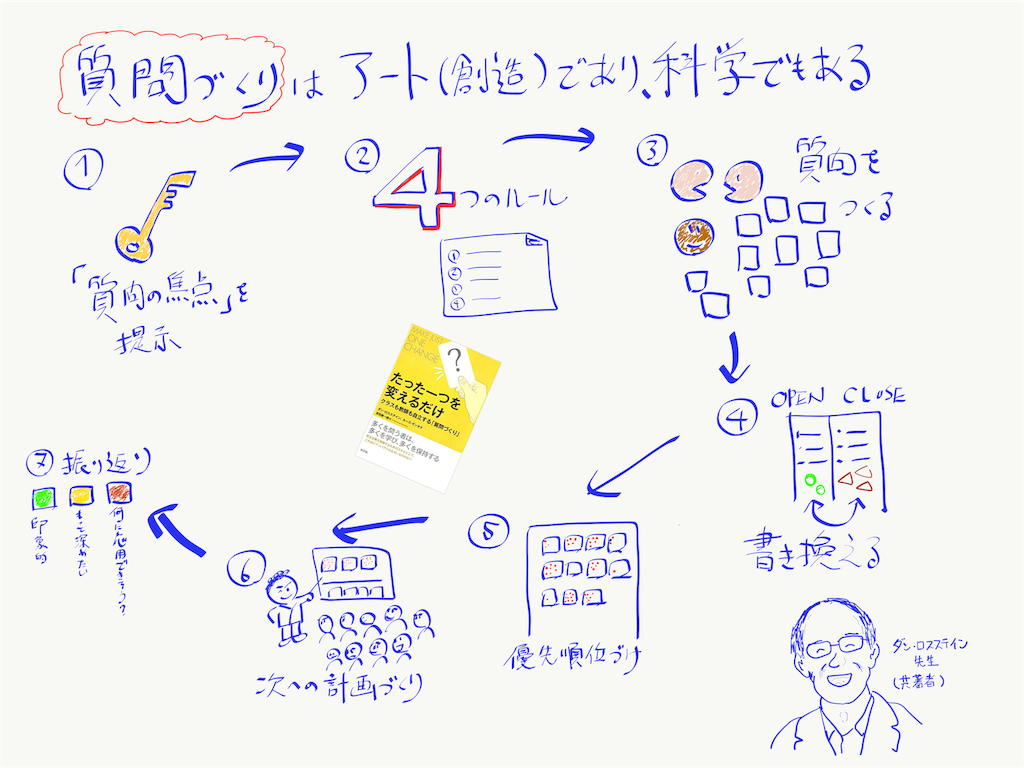 質問づくりはアート(創造)であり、科学でもある
①
「質問の焦点」を
提示
②
4つのルール
①
②
③
④
③
質問を
つくる
MAKE JUST
ONE
CHANGE
?
たった一つを
変えるだけ
クラスも教師も自立する「質問づくり」
多くを問う者は、
多くを学び、多くを保持する
④
OPEN CLOSE
書き換える
⑤
優先順位づけ
⑥
次への計画づくり
⑦ 振り返り
印象的
もっと深めたい
何に応用できそう?
ダン・ロススティン
先生
(共著者)